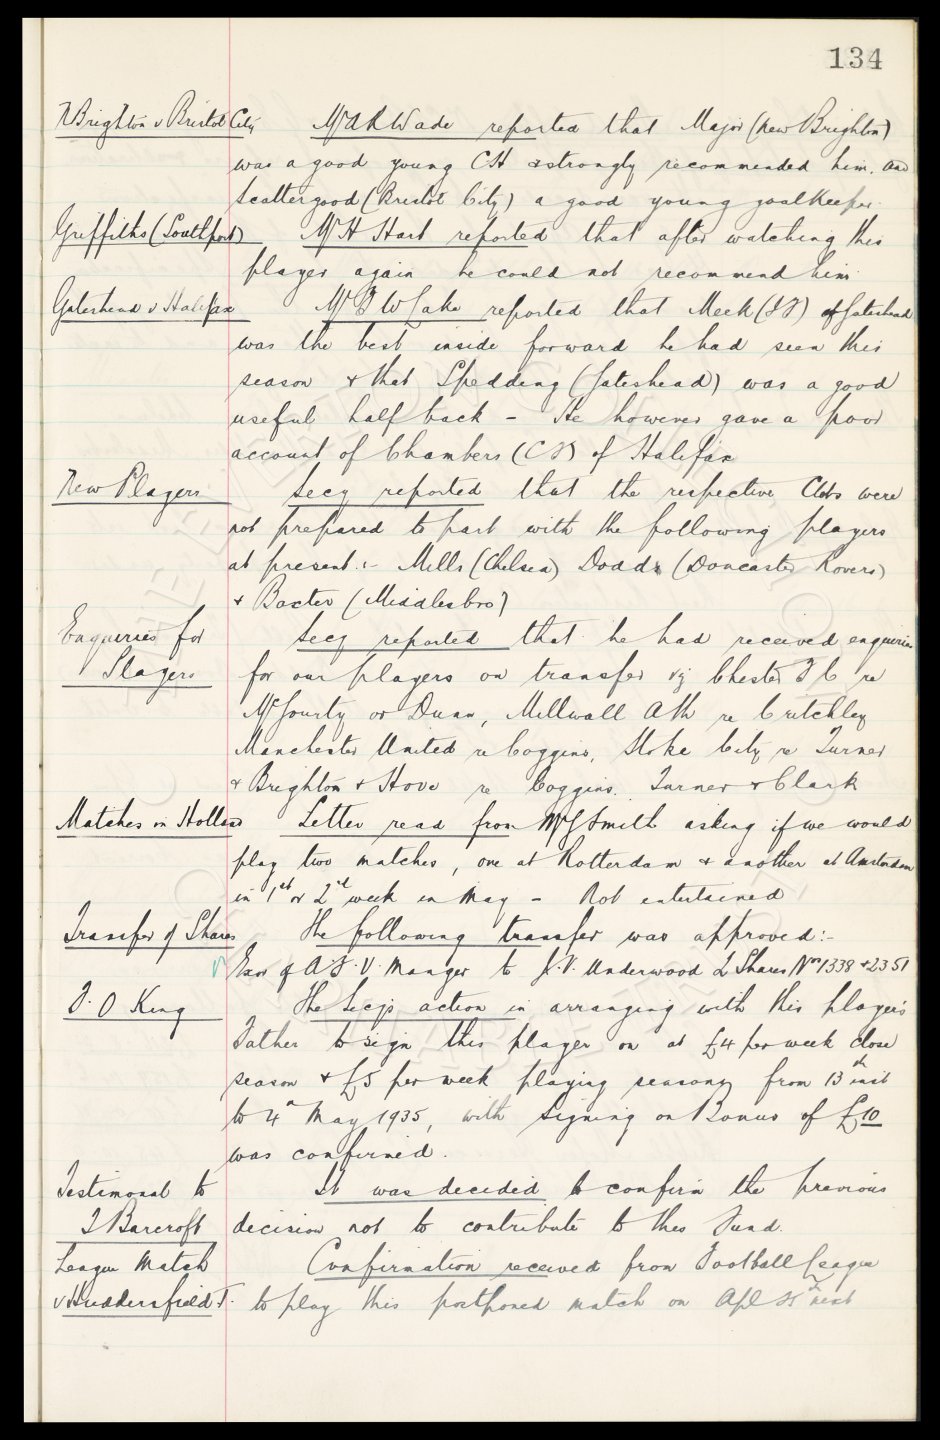 134
N Brighton v Bristol City Mr A R Wade reported that Major (New Brighton)
was a good young CH & strongly recommended him, and
Scattergood (Bristol City) a good young goalkeeper.
Griffiths (Southport) Mr H Hart reported that after watching this
player again he could not recommend him.
Gateshead v Halifax Mr W Sake reported that Meek (IF) of Gateshead
was the best inside forward he had seen this
season & that Spedding (Gateshead) was a good
useful half back - He however gave a poor
account of Chambers (CF) of Halifax
New Players Secy reported that the respective Clubs were
not prepared to part with the following players
at present :- Mills (Chelsea) Dodds (Doncaster Rovers)
& Baxter (Middlesbro')
Enquiries for Secy reported that he had received enquiries
Players for our players on transfer viz Chester F C re
McGourty or Dunn, Millwall Ath re Critchley
Manchester United re Coggins, Stoke City re Turner
& Brighton & Hove re Coggins, Turner & Clark
Matches in Holland Letter read from Mr G Smith asking if we would
play two matches, one at Rotterdam & another at Amsterdam
in 1st or 2nd week in May - Not entertained
Transfer of Shares The following transfer was approved:-
Exor of A.F.V. Manger to J.V. Underwood 2 Shares Nos 1338 & 2351
F. O King The Secy's action in arranging with this player's
Father to sign this player on at £4 per week close
season & £5 per week playing season, from 13th inst
to 4th May 1935, with Signing on Bonus of £10
was confirmed.
Testimonal to It was decided to confirm the previous
T Barcroft decision not to contribute to this Fund.
League Match Confirmation received from Football League
v Huddersfield T. to play this postponed match on Apl next